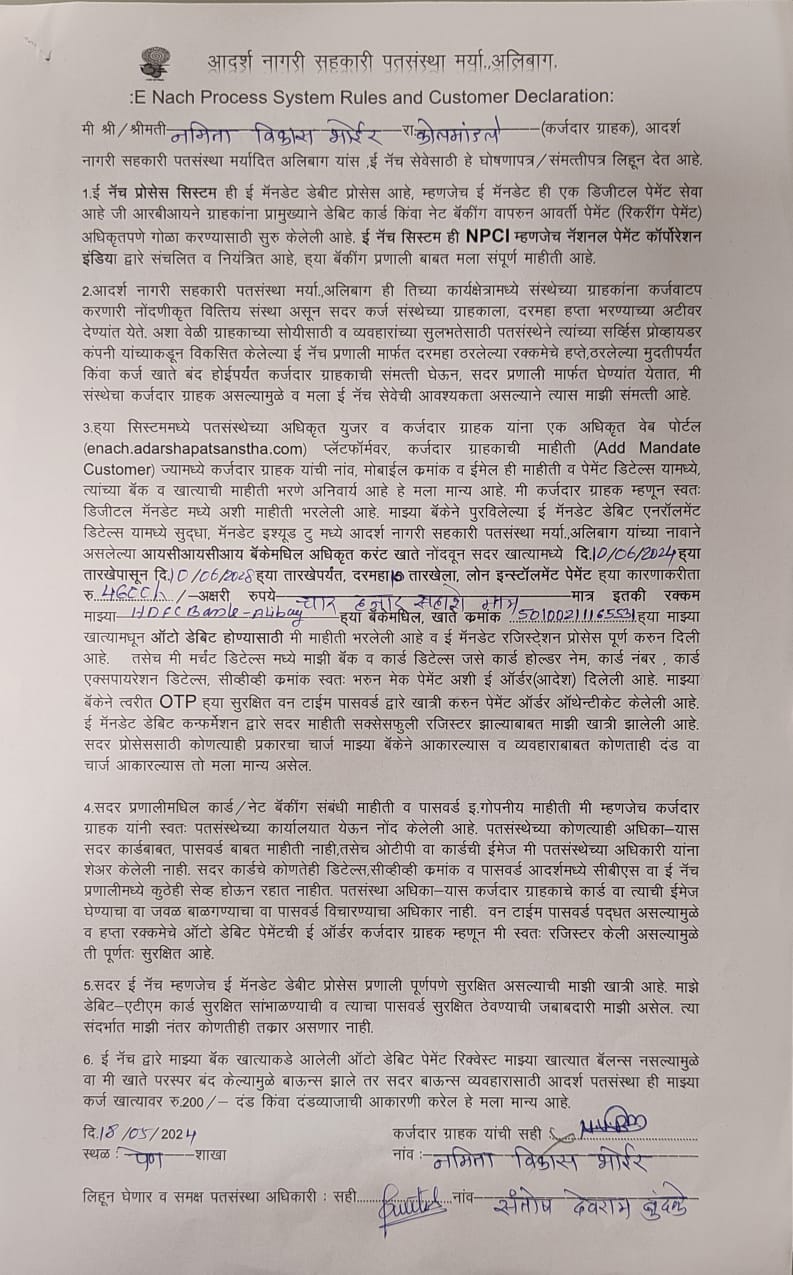 आदर्श नागरी सहकारी पतसंस्था मर्या.,अलिबाग.
:E Nach Process System Rules and Customer Declaration:
मी श्री/श्रीमती नमिता विकास भोईर रा. कोलमांडले (कर्जदार ग्राहक), आदर्श
नागरी सहकारी पतसंस्था मर्यादित अलिबाग यांस ,ई नॅच सेवेसाठी हे घोषणापत्र/संमत्तीपत्र लिहून देत आहे.
1.ई नॅच प्रोसेस सिस्टम ही ई मॅनडेट डेबीट प्रोसेस आहे, म्हणजेच ई मॅनडेट ही एक डिजीटल पेमेंट सेवा
आहे जी आरबीआयने ग्राहकांना प्रामुख्याने डेबिट कार्ड किंवा नेट बॅकींग वापरुन आवर्ती पेमेंट (रिकरींग पेमेंट)
अधिकृतपणे गोळा करण्यासाठी सुरु केलेली आहे. ई नॅच सिस्टम ही NPCI म्हणजेच नॅशनल पेमेंट कॉर्पोरेशन
इंडिया द्वारे संचलित व नियंत्रित आहे, ह्या बॅकींग प्रणाली बाबत मला संपूर्ण माहीती आहे.
2.आदर्श नागरी सहकारी पतसंस्था मर्या.,अलिबाग ही तिच्या कार्यक्षेत्रामध्ये संस्थेच्या ग्राहकांना कर्जवाटप
करणारी नोंदणीकृत वित्तिय संस्था असून सदर कर्ज संस्थेच्या ग्राहकाला, दरमहा हप्ता भरण्याच्या अटीवर
देण्यांत येते. अशा वेळी ग्राहकाच्या सोयीसाठी व व्यवहारांच्या सुलभतेसाठी पतसंस्थेने त्यांच्या सर्व्हिस प्रोव्हायडर
कंपनी यांच्याकडून विकसित केलेल्या ई नॅच प्रणाली मार्फत दरमहा ठरलेल्या रक्कमेचे हप्ते,ठरलेल्या मुदतीपर्यंत
किंवा कर्ज खाते बंद होईपर्यंत कर्जदार ग्राहकाची संमत्ती घेऊन, सदर प्रणाली मार्फत घेण्यांत येतात, मी
संस्थेचा कर्जदार ग्राहक असल्यामुळे व मला ई नॅच सेवेची आवश्यकता असल्याने त्यास माझी संमत्ती आहे.
3.ह्या सिस्टममध्ये पतसंस्थेच्या अधिकृत युजर व कर्जदार ग्राहक यांना एक अधिकृत वेब पोर्टल
(enach.adarshapatsanstha.com) प्लॅटफॉर्मवर, कर्जदार ग्राहकाची माहीती (Add Mandate
Customer) ज्यामध्ये कर्जदार ग्राहक यांची नांव, मोबाईल क्रमांक व ईमेल ही माहीती व पेमेंट डिटेल्स यामध्ये,
त्यांच्या बॅक व खात्याची माहीती भरणे अनिवार्य आहे हे मला मान्य आहे. मी कर्जदार ग्राहक म्हणून स्वतः
डिजीटल मॅनडेट मध्ये अशी माहीती भरलेली आहे. माझ्या बॅकेने पुरविलेल्या ई मॅनडेट डेबिट एनरॉलमेंट
डिटेल्स यामध्ये सुद्धा, मॅनडेट इश्यूड टु मध्ये आदर्श नागरी सहकारी पतसंस्था मर्या.,अलिबाग यांच्या नावाने
असलेल्या आयसीआयसीआय बॅकेमधिल अधिकृत करंट खाते नोंदवून सदर खात्यामध्ये दि.10/06/2024 ह्या
तारखेपासून दि.10/06/2028 ह्या तारखेपर्यंत, दरमहा 10 तारखेला, लोन इन्स्टॉलमेंट पेमेंट ह्या कारणाकरीता
रु. 4600/- /-अक्षरी रुपये चार हजार सहाशे मात्र मात्र इतकी रक्कम
माझ्या HDFC Bank-Alibag ह्या बॅकेमधिल, खाते क्रमांक 50100211165531 ह्या माझ्या
खात्यामधून ऑटो डेबिट होण्यासाठी मी माहीती भरलेली आहे व ई मॅनडेट रजिस्ट्रेशन प्रोसेस पूर्ण करुन दिली
आहे. तसेच मी मर्चंट डिटेल्स मध्ये माझी बॅक व कार्ड डिटेल्स जसे कार्ड होल्डर नेम, कार्ड नंबर , कार्ड
एक्सपायरेशन डिटेल्स, सीव्हीव्ही क्रमांक स्वतः भरुन मेक पेमेंट अशी ई ऑर्डर(आदेश) दिलेली आहे. माझ्या
बॅकेने त्वरीत OTP ह्या सुरक्षित वन टाईम पासवर्ड द्वारे खात्री करुन पेमेंट ऑर्डर ऑथेन्टीकेट केलेली आहे.
ई मॅनडेट डेबिट कन्फर्मेशन द्वारे सदर माहीती सक्सेसफुली रजिस्टर झाल्याबाबत माझी खात्री झालेली आहे.
सदर प्रोसेससाठी कोणत्याही प्रकारचा चार्ज माझ्या बॅकेने आकारल्यास व व्यवहाराबाबत कोणताही दंड वा
चार्ज आकारल्यास तो मला मान्य असेल.
4.सदर प्रणालीमधिल कार्ड/नेट बॅकींग संबंधी माहीती व पासवर्ड इ.गोपनीय माहीती मी म्हणजेच कर्जदार
ग्राहक यांनी स्वतः पतसंस्थेच्या कार्यालयात येऊन नोंद केलेली आहे. पतसंस्थेच्या कोणत्याही अधिका–यास
सदर कार्डबाबत, पासवर्ड बाबत माहीती नाही,तसेच ओटीपी वा कार्डची ईमेज मी पतसंस्थेच्या अधिकारी यांना
शेअर केलेली नाही. सदर कार्डचे कोणतेही डिटेल्स,सीव्हीव्ही क्रमांक व पासवर्ड आदर्शमध्ये सीबीएस वा ई नॅच
प्रणालीमध्ये कुठेही सेव्ह होऊन रहात नाहीत. पतसंस्था अधिका–यास कर्जदार ग्राहकाचे कार्ड वा त्याची ईमेज
घेण्याचा वा जवळ बाळगण्याचा वा पासवर्ड विचारण्याचा अधिकार नाही. वन टाईम पासवर्ड पद्धत असल्यामुळे
व हप्ता रक्कमेचे ऑटो डेबिट पेमेंटची ई ऑर्डर कर्जदार ग्राहक म्हणून मी स्वतः रजिस्टर केली असल्यामुळे
ती पूर्णतः सुरक्षित आहे.
5.सदर ई नॅच म्हणजेच ई मॅनडेट डेबीट प्रोसेस प्रणाली पूर्णपणे सुरक्षित असल्याची माझी खात्री आहे. माझे
डेबिट–एटीएम कार्ड सुरक्षित सांभाळण्याची व त्याचा पासवर्ड सुरक्षित ठेवण्याची जबाबदारी माझी असेल. त्या
संदर्भात माझी नंतर कोणतीही तक्रार असणार नाही.
6. ई नॅच द्वारे माझ्या बॅक खात्याकडे आलेली ऑटो डेबिट पेमेंट रिक्वेस्ट माझ्या खात्यात बॅलन्स नसल्यामुळे
वा मी खाते परस्पर बंद केल्यामुळे बाऊन्स झाले तर सदर बाऊन्स व्यवहारासाठी आदर्श पतसंस्था ही माझ्या
कर्ज खात्यावर रु.200/– दंड किंवा दंडव्याजाची आकारणी करेल हे मला मान्य आहे.
दि.18/05/2024 कर्जदार ग्राहक यांची सही :
स्थळ : पेण शाखा नांव : नमिता विकास भोईर
लिहून घेणार व समक्ष पतसंस्था अधिकारी : सही नांव संतोष देवराम